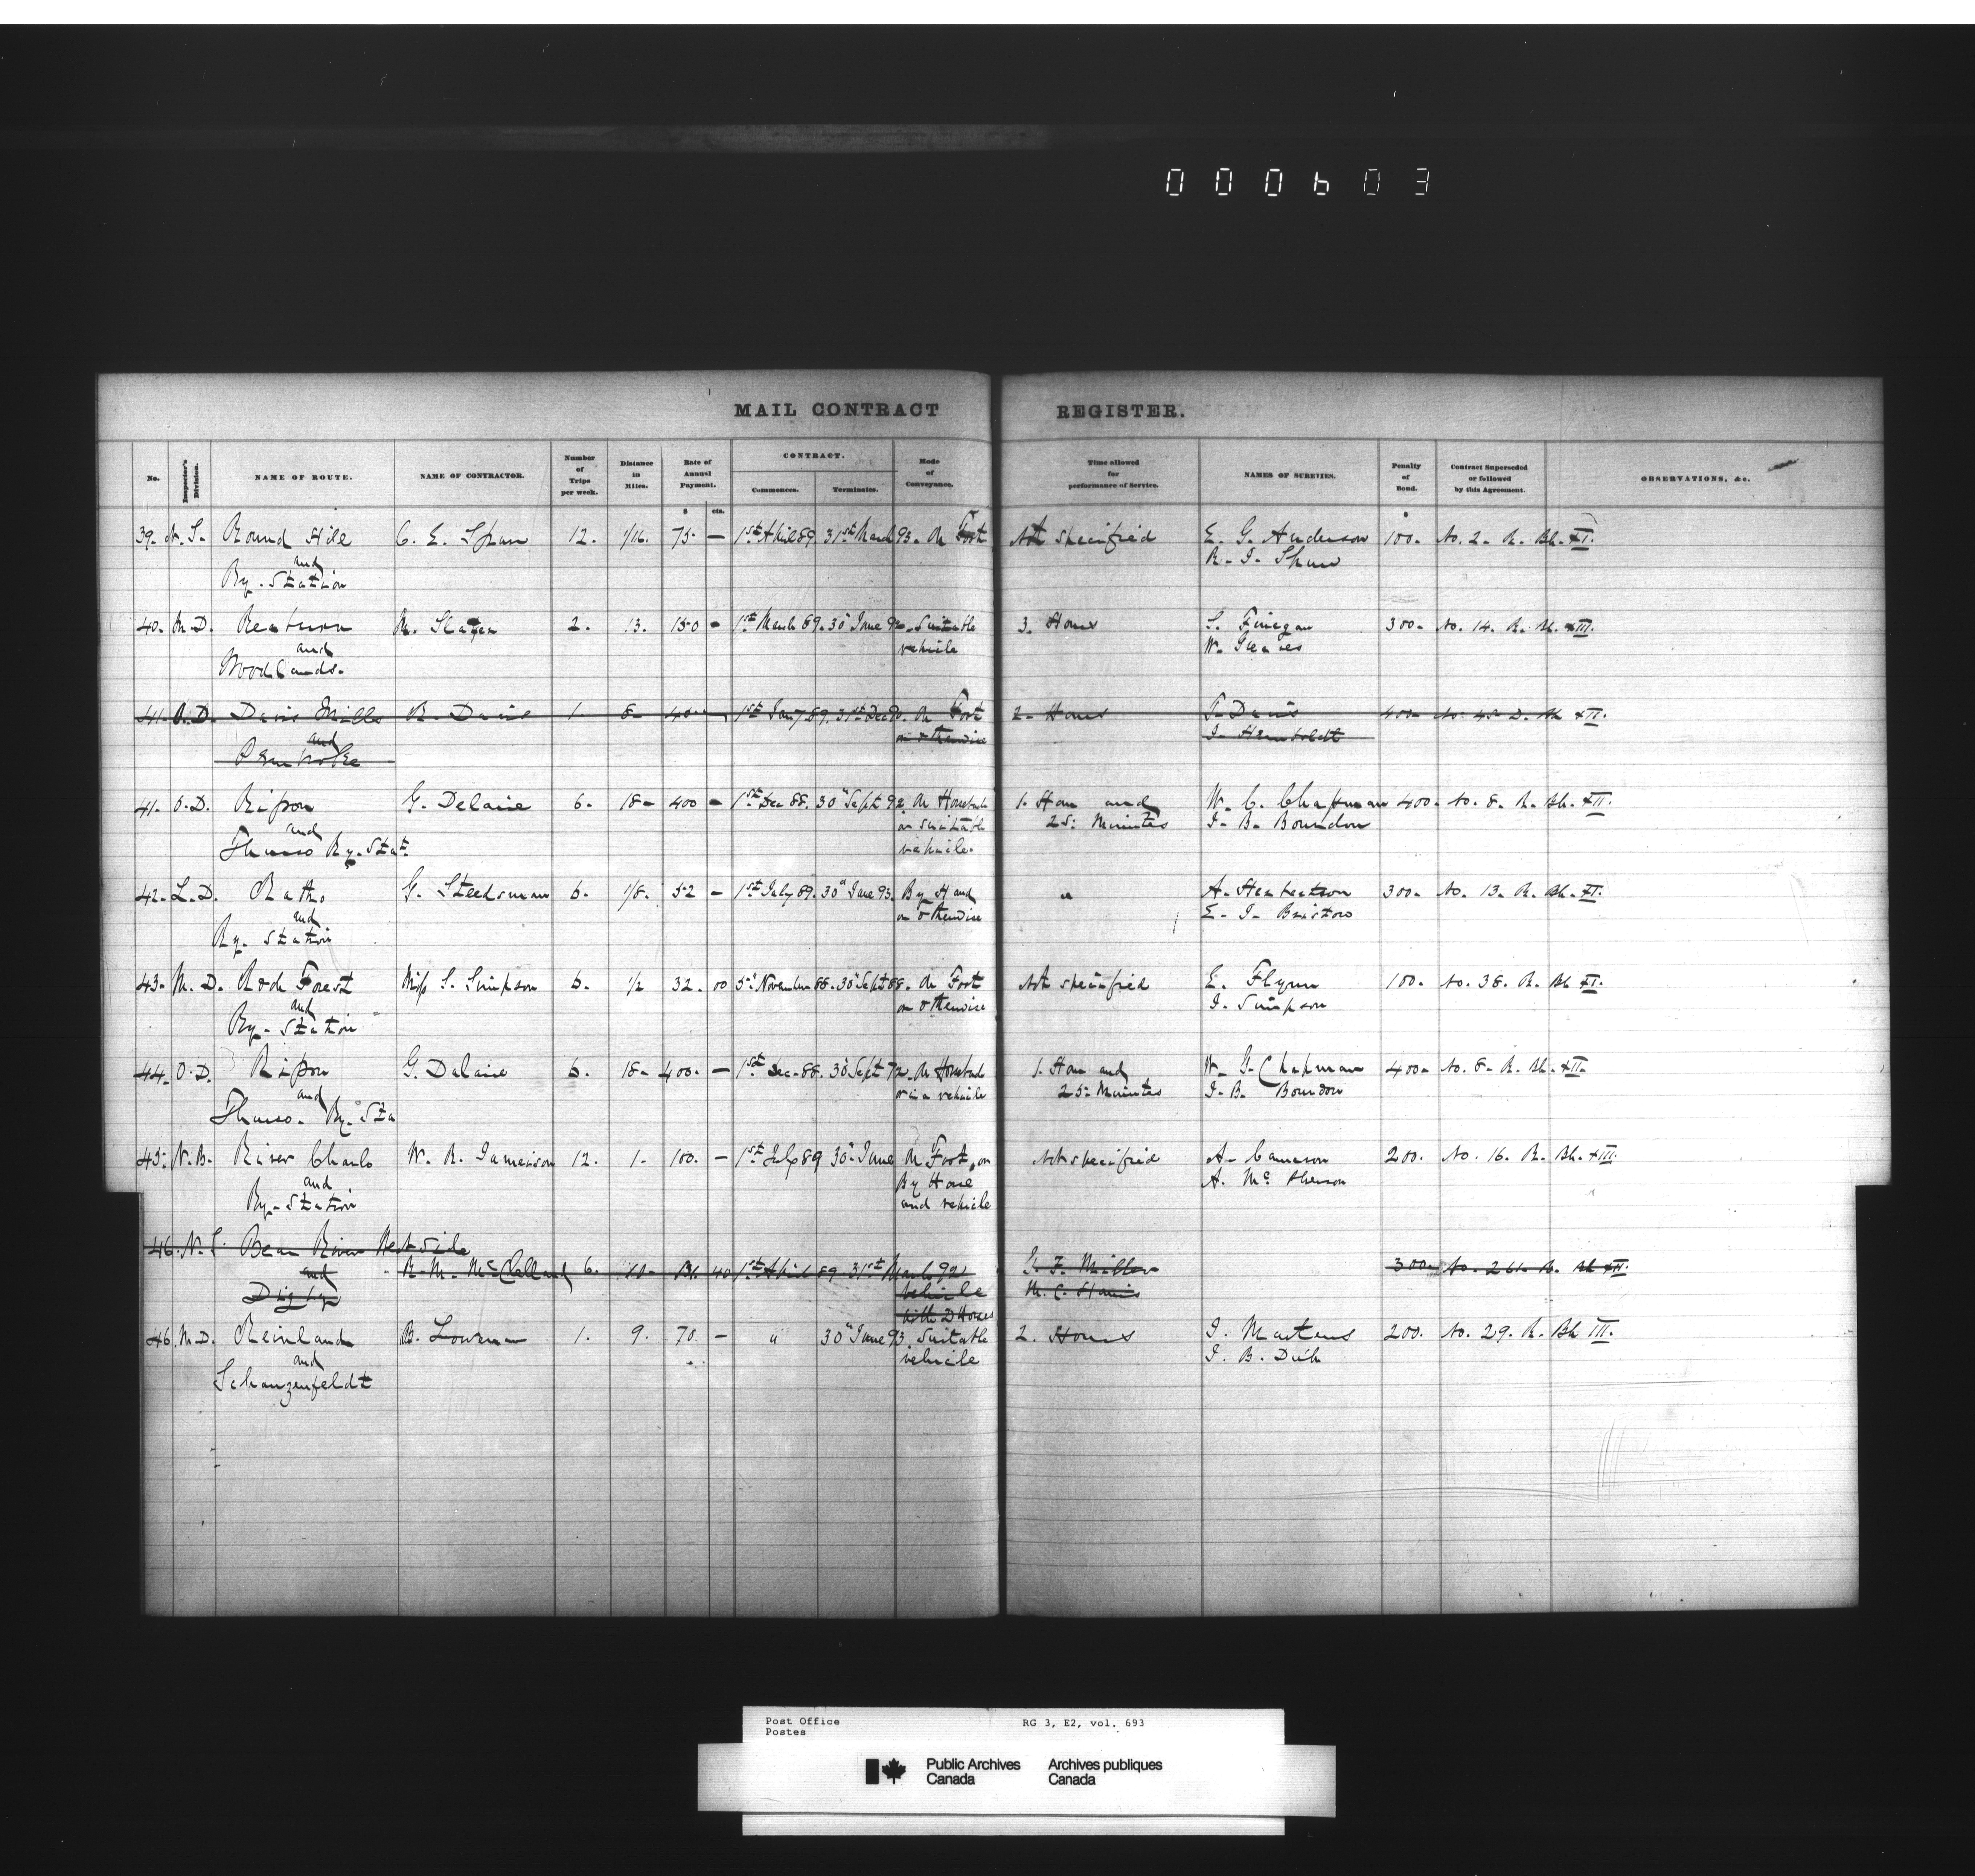 000603
MAIL CONTRACT REGISTER.
No. Inspector's Division. NAME OF ROUTE. NAME OF CONTRACTOR. Number of Trips per week. Distance in Miles. Rate of Annual Payment. CONTRACT. Commences. Terminates. Mode of Conveyance. Time allowed for performance of Service. NAMES OF SURETIES. Penalty of Bond. Contract Superseded or followed by this Agreement. OBSERVATIONS, &c.
$ cts.
39. N. S. Round Hill C. E. Spurr 12. 1/16. 75. — 1st April 89. 31st March 93. On Foot Not specified E. G. Anderson 100. No. 2. R. Bk. XI.
and R. J. Shaw
Ry. Station
40. M. D. Reaburn M. Slater 2. 13. 150 - 1st March 89. 30" June 92. Suitable 3. Hours S. Finegan 300. No. 14. R. Bk. XIII.
and vehicle W. Greaves
Woodlands.
41. O. D. Davis Mills R. Davis 1. 8. 40 1st Jany 89. 31st Dec On Foot 2. Hours T. Davis 400. No. 45 D. Bk XII.
and or otherwise J. Humboldt
Pembroke
41. O. D. Ripon G. Delaire 6. 18. 400 - 1st Dec 88. 30" Sept 92. On Horseback 1. Hour and W. C. Chapman 400. No. 8. R. Bk. XII.
and or suitable 25. Minutes J. B. Bourdon
Thurso Ry. Stat. vehicle.
42. L. D. Ratho G. Steedsman 6. 1/8. 52 - 1st July 89. 30" June 93. By Hand " A. 300. No. 13. R. Bk. XI.
and or otherwise E. J. Bristow
Ry. Station
43. M. D. Rock Forest Miss S. Simpson 6. 1/2 32. 00 5" November 88. 30" Sept 88. On Foot Not specified E. Flynn 100. No. 38. R. Bk XI.
and or otherwise J. Simpson
Ry. Station
44. O. D. Ripon G. Dalaire 6. 18. 400. — 1st Dec. 88. 30" Sept 92. On Horseback 1. Hour and W. G. Chapman 400. No. 8. R. Bk. XII.
and or in a vehicle 25. Minutes J. B. Bourdon
Thurso. Ry. Sta
45. N. B. River Charlo W. R. Jameison 12. 1. 100. — 1st July 89 30" June On Foot, or Not specified A. Cameson 200. No. 16. R. Bk. XIII.
and By Horse A. Mc Pherson
Ry. Station and vehicle
46. N. S. Bear River West side
and R. M. McClelland 6. 10. 40 1st April 89 31st March 92 G. F. Miller 300. No. R. Bk XII.
Digby vehicle M. C. Harris
with 2 Horses
46. M. D. Reinland B. Lowman 1. 9. 70. — " 30" June 93. Suitable 2. Hours J. Martens 200. No. 29. R. Bk III.
and vehicle J. B. Dick
Schanzenfeldt
Post Office RG 3, E2, vol. 693
Postes
Public Archives Archives publiques
Canada Canada